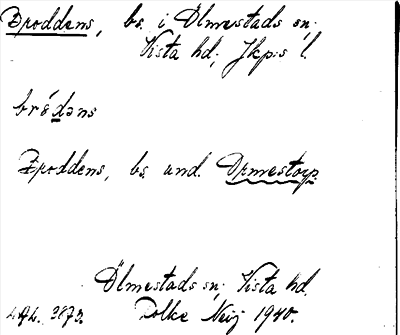 Broddens, bs. i Ölmestads sn;
Vista hd; Jkp:s l.
bródəns
Broddens, bs. und. Ormestorp.
Ölmestads sn; Vista hd.
Folke Neij 1940.